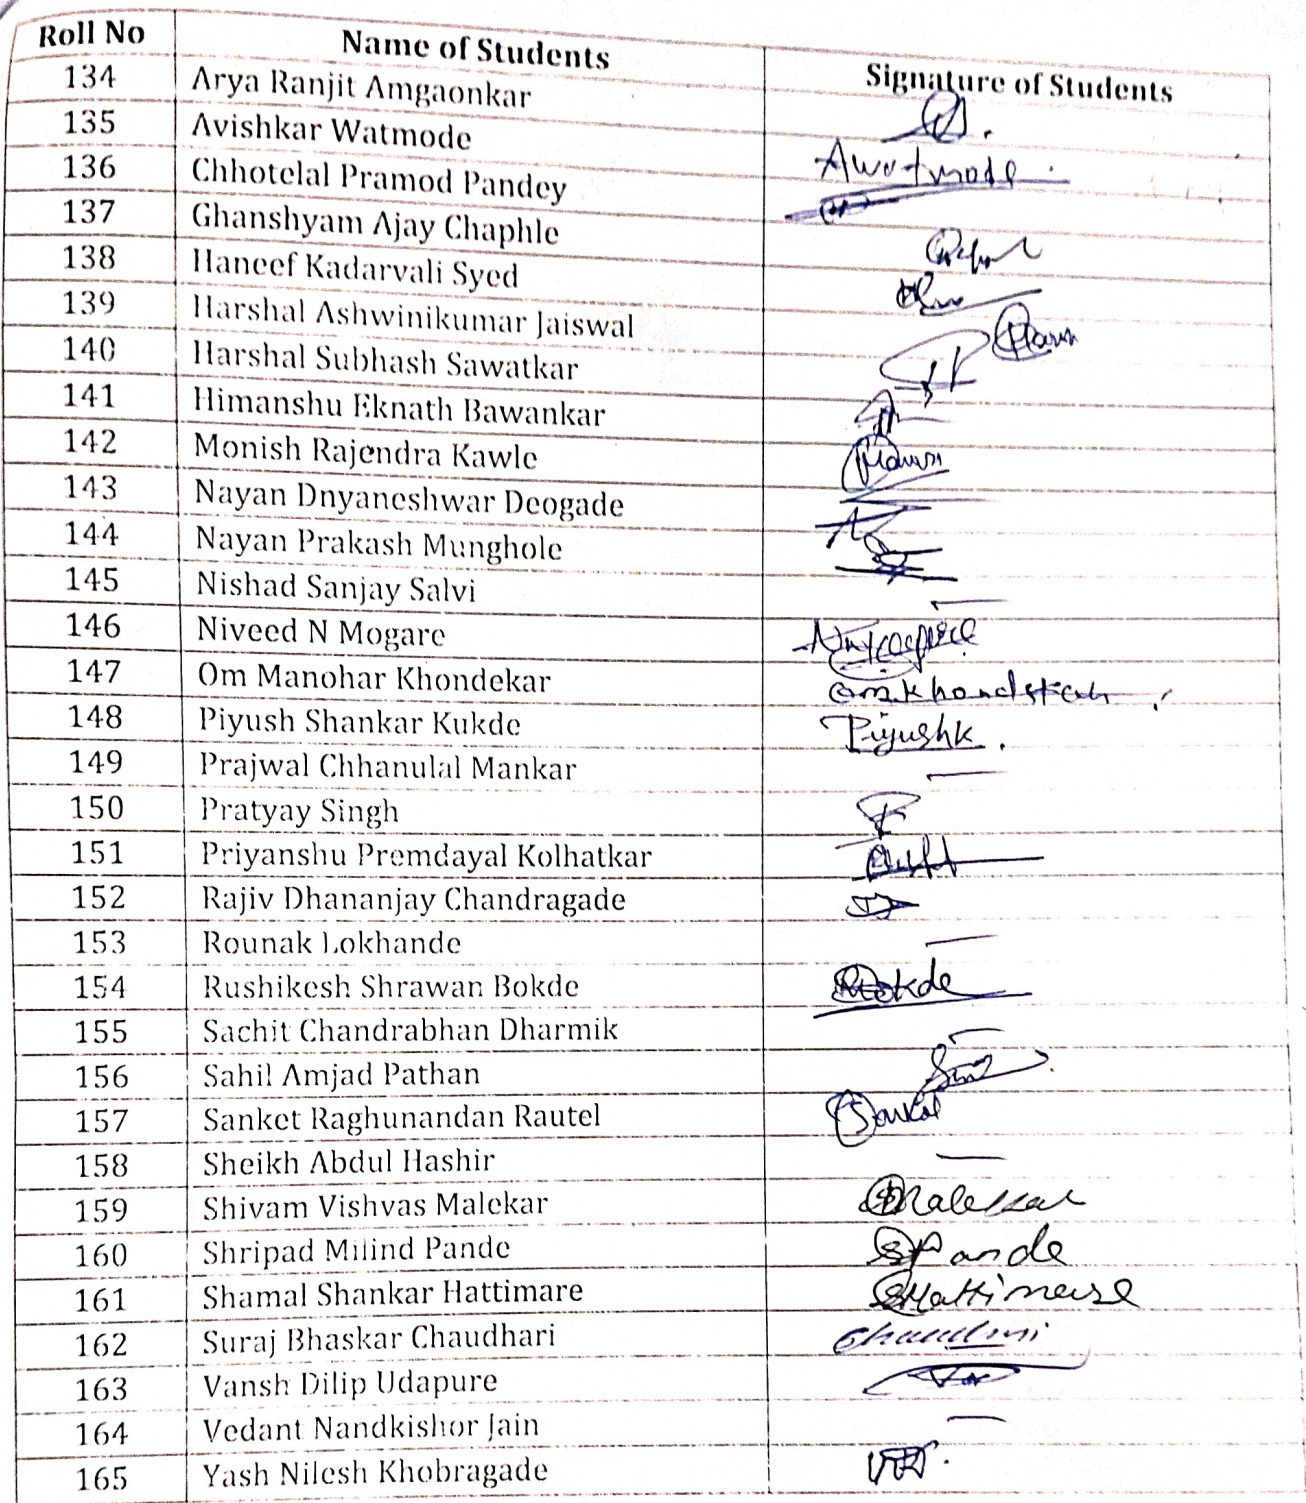 Roll No Name of Students Signature of Students
134 Arya Ranjit Amgaonkar
135 Avishkar Watmode Awatmode
136 Chhotelal Pramod Pandey
137 Ghanshyam Ajay Chaphle
138 Haneef Kadarvali Syed
139 Harshal Ashwinikumar Jaiswal
140 Harshal Subhash Sawatkar
141 Himanshu Eknath Bawankar
142 Monish Rajendra Kawle
143 Nayan Dnyaneshwar Deogade
144 Nayan Prakash Munghole
145 Nishad Sanjay Salvi
146 Niveed N Mogare
147 Om Manohar Khondekar
148 Piyush Shankar Kukde Piyushk.
149 Prajwal Chhanulal Mankar
150 Pratyay Singh
151 Priyanshu Premdayal Kolhatkar
152 Rajiv Dhananjay Chandragade
153 Rounak Lokhande
154 Rushikesh Shrawan Bokde
155 Sachit Chandrabhan Dharmik
156 Sahil Amjad Pathan
157 Sanket Raghunandan Rautel
158 Sheikh Abdul Hashir
159 Shivam Vishvas Malekar
160 Shripad Milind Pande SPande
161 Shamal Shankar Hattimare
162 Suraj Bhaskar Chaudhari
163 Vansh Dilip Udapure
164 Vedant Nandkishor Jain
165 Yash Nilesh Khobragade